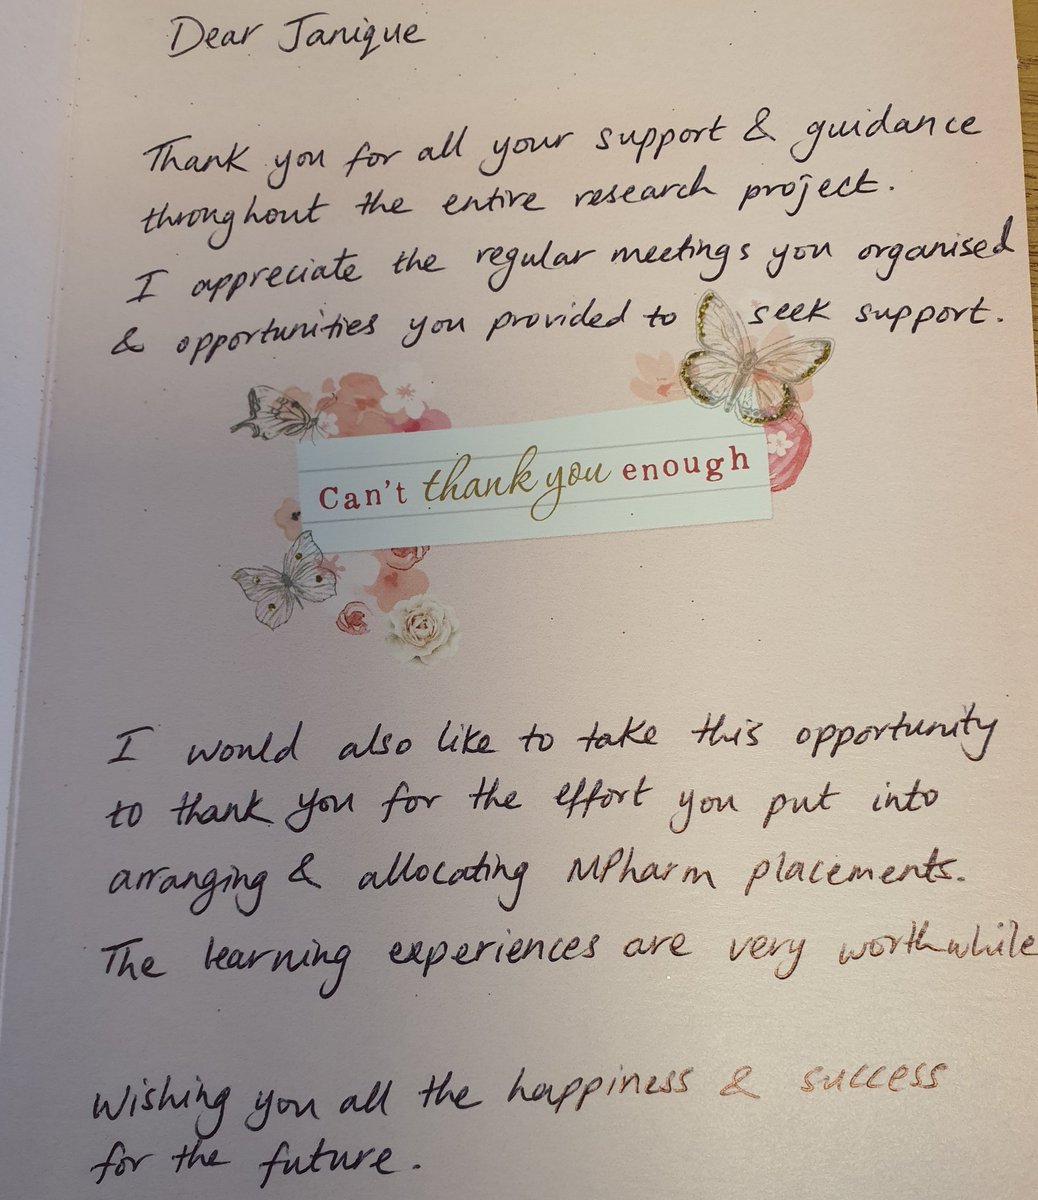 Dear Janique
Thank you for all your support & guidance
throughout the entire research project.
I appreciate the regular meetings you organised
& opportunities you provided to seek support.
Can't thank you enough
I would also like to take this opportunity
to thank you for the effort you put into
arranging & allocating MPharm placements.
The learning experiences are very worthwhile
Wishing you all the happiness & success
for the future.